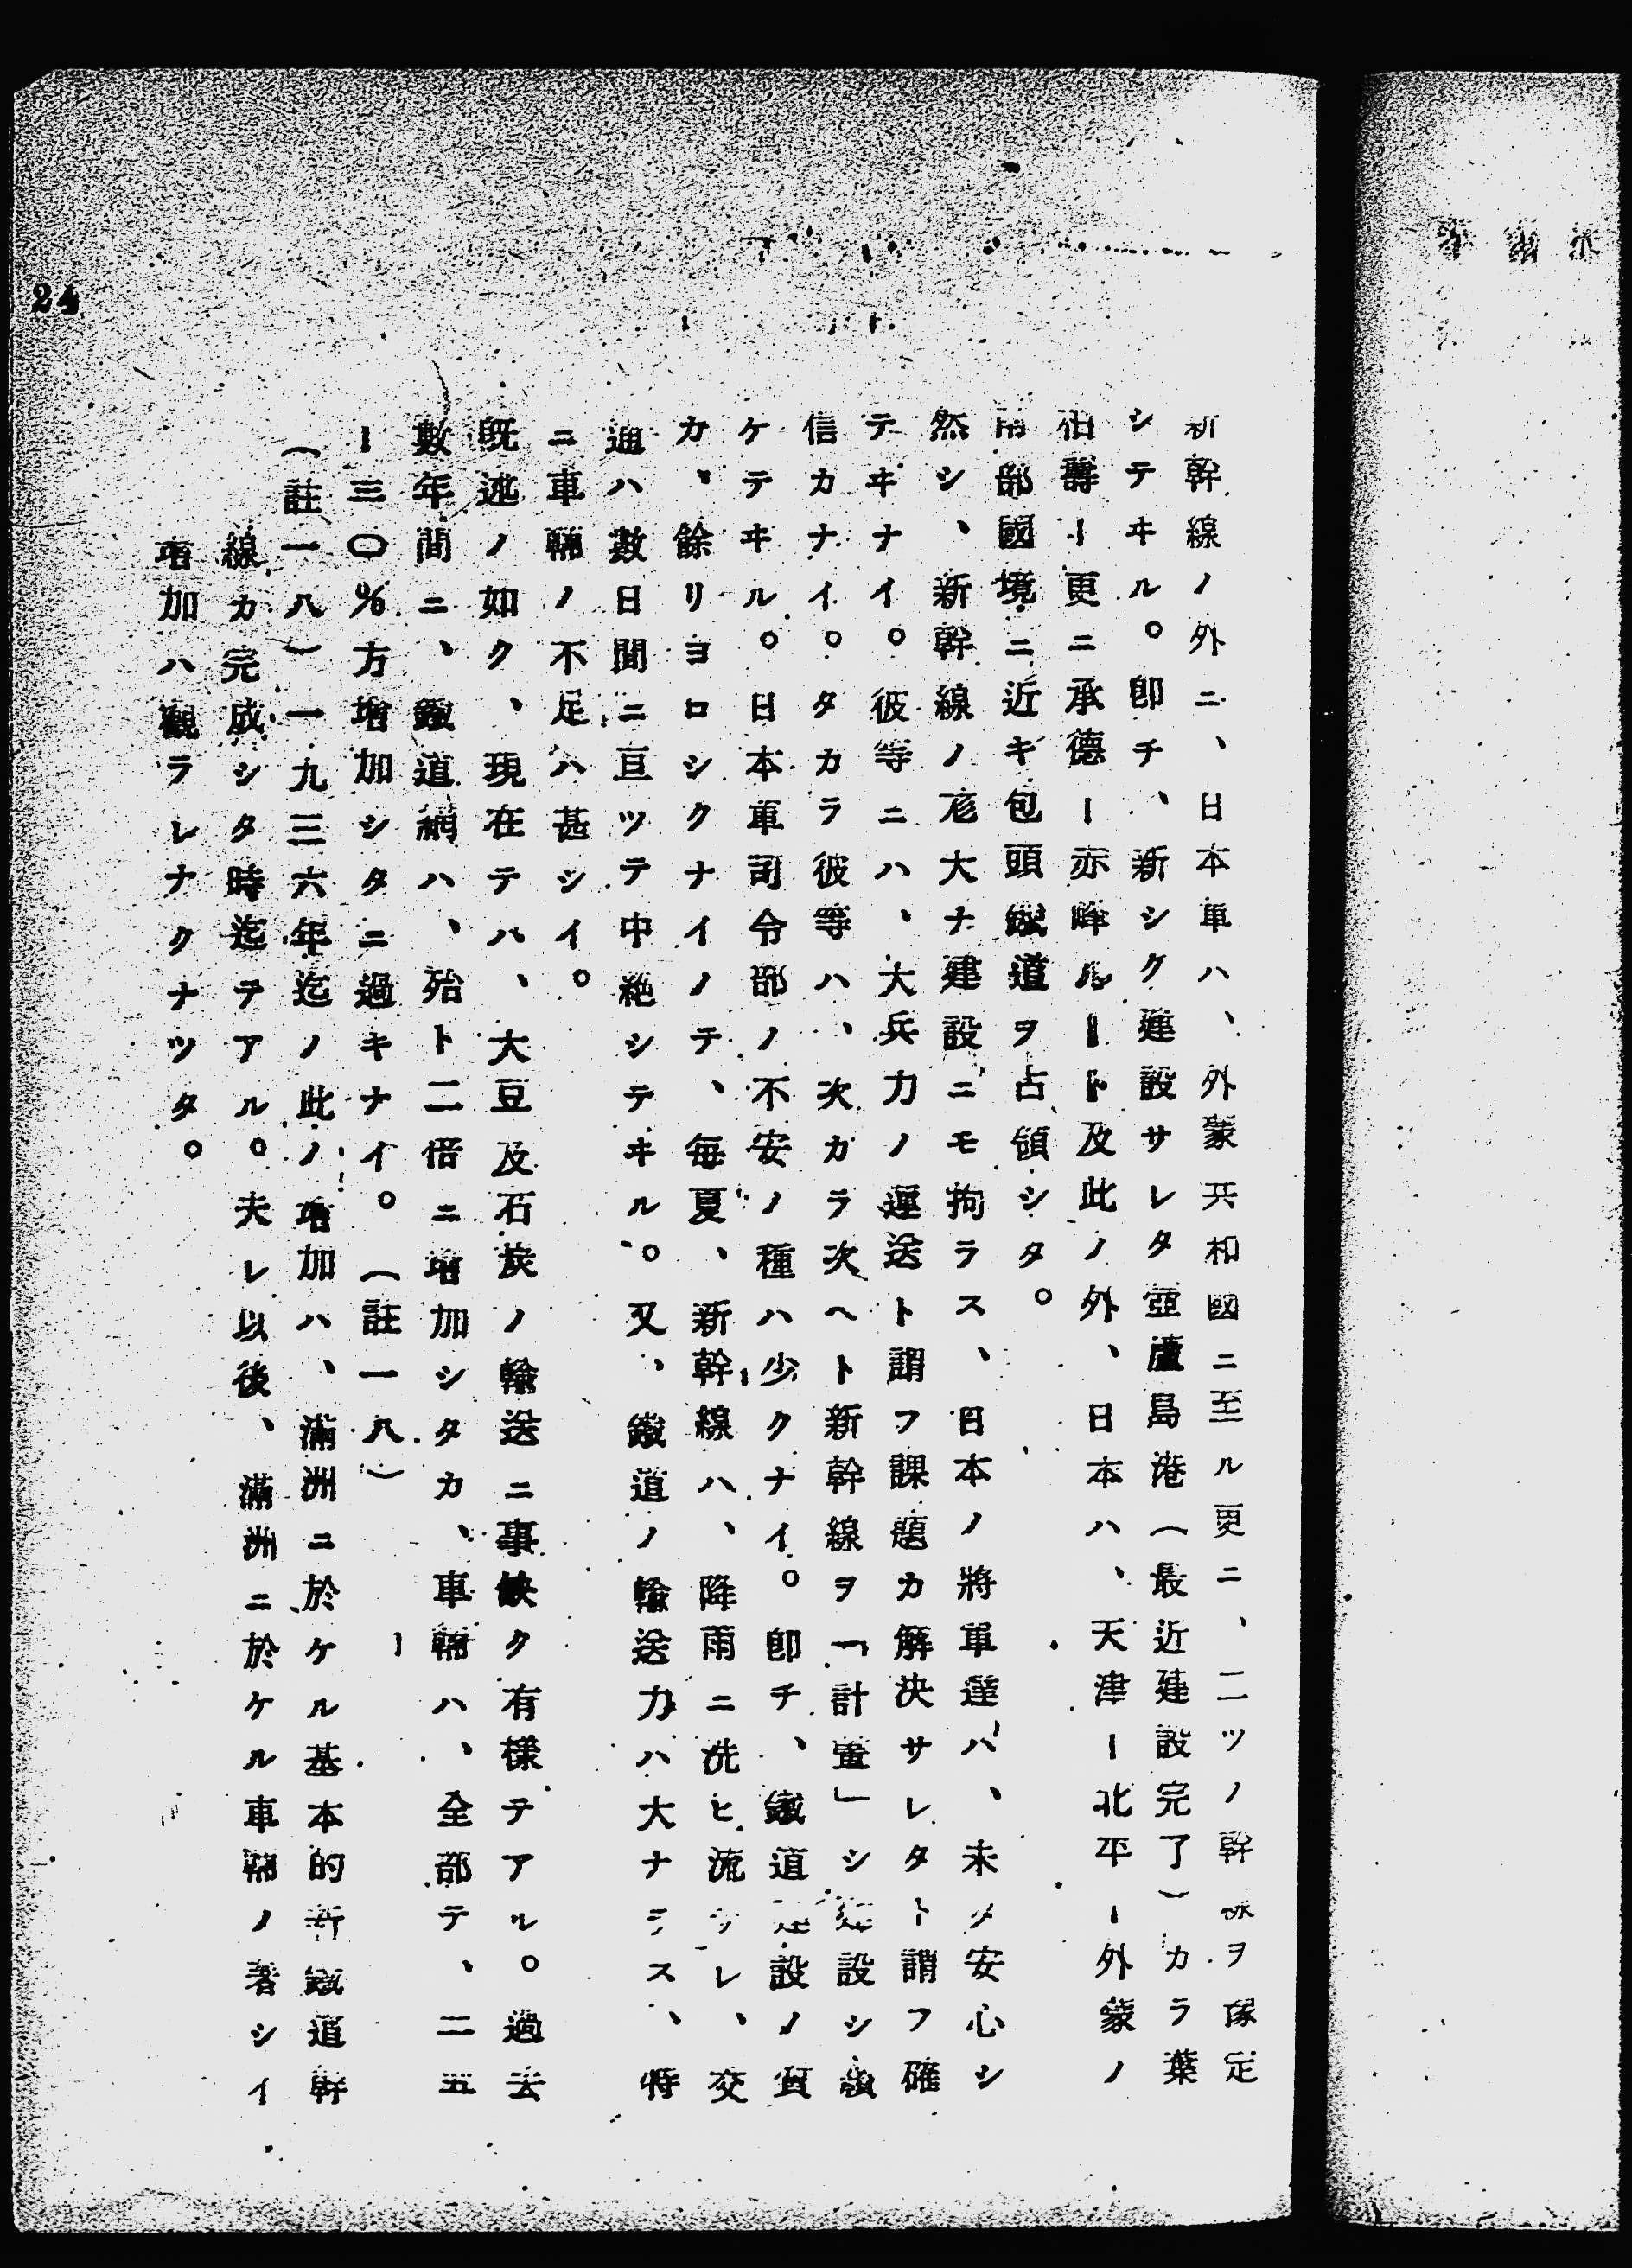 新幹線ノ外ニ、日本軍ハ、外蒙共和國ニ至ル更ニ、二ツノ幹線ヲ豫定
シテヰル。卽チ、新シク建設サレタ壺蘆島港（最近建設完了）カラ葉
柏壽ー更ニ承德ー赤峰ルート及此ノ外、日本ハ、天津ー北平ー外蒙ノ
南部國境ニ近キ包頭鐵道ヲ占領シタ。
然シ、新幹線ノ尨大ナ建設ニモ拘ラス、日本ノ將軍達ハ、未タ安心シ
テヰナイ。彼等ニハ、大兵力ノ運送ト謂フ課題カ解決サレタト謂フ確
信カナイ。タカラ彼等ハ、次カラ次ヘト新幹線ヲ「計畫」シ建設シ續
ケテヰル。日本軍司令部ノ不安ノ種ハ少クナイ。卽チ、鐵道建設ノ質
カ、餘リヨロシクナイノテ、毎夏、新幹線ハ、降雨ニ洗ヒ流サレ、交
通ハ數日間ニ亘ツテ中絶シテヰル。又、鐵道ノ輸送力ハ大ナラス、特
ニ車輛ノ不足ハ甚シイ。
既述ノ如ク、現在テハ、大豆及石炭ノ輸送ニ事缺ク有樣テアル。過去
數年間ニ、鐵道網ハ、殆ト二倍ニ增加シタカ、車輛ハ、全部テ、二五
ー三〇％方增加シタニ過キナイ。（註一八）
（註一八）一九三六年迄ノ此ノ增加ハ、滿洲ニ於ケル基本的新鐵道幹
線カ完成シタ時迄テアル。夫レ以後、滿洲ニ於ケル車輛ノ著シイ
增加ハ觀ラレナクナツタ。
24